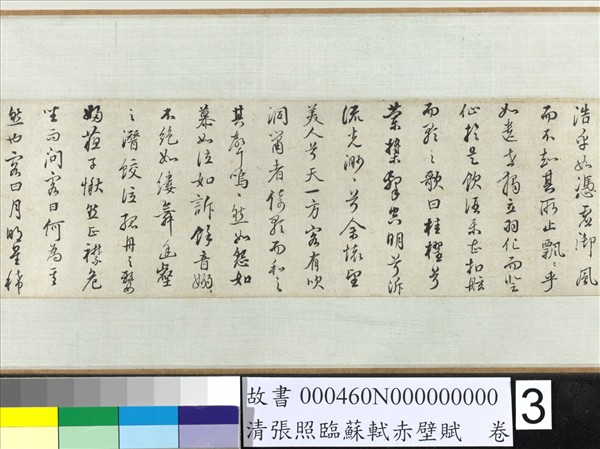 浩乎如憑虛御風
而不知其所止飄〻乎
如遺世獨立羽化而登
仙於是飲酒樂甚扣舷
而歌之歌曰桂櫂兮
蘭槳擊空明兮泝
流光渺〻兮余懷望
美人兮天一方客有吹
洞簫者倚歌而和之
其聲嗚〻然如怨如
慕如泣如訴餘音嫋〻
不絕如縷舞幽壑
之潛蛟泣孤舟之嫠
婦蘇子愀然正襟危
坐而問客曰何為其
然也客曰月明星稀
故書 000460N000000000
清張照臨蘇軾赤壁賦 卷
3